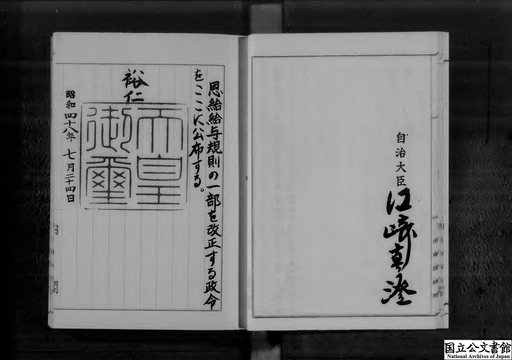 自治大臣
江﨑真澄
恩給給与規則の一部を改正する政令
をここに公布する。
裕仁
天皇
御璽
昭和四十八年七月二十四日
国立公文書館
National Archives of Japan